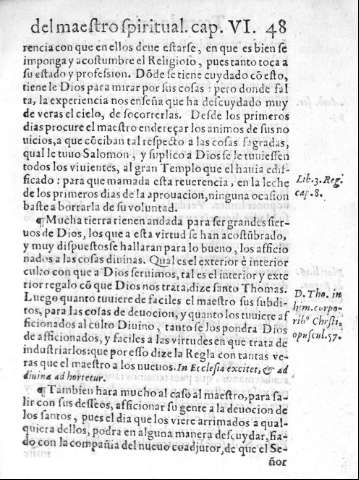 del maestro spiritual. cap. VI. 48
rencia con que en ellos deue estarse, en que es bien se
imponga y acostumbre el Religioso, pues tanto toca a
su estado y profession. Dōde se tiene cuydado cō esto,
tiene le Dios para mirar por sus cosas: pero donde fal
ta, la experiencia nos enseña que ha descuydado muy
de veras el cielo, de socorrerlas. Desde los primeros
dias procure el maestro endereçar los animos de sus no
uicios, a que cōciban tal respecto a las cosas sagradas,
qual le tuuo Salomon, y suplico a Dios se le tuuiessen
todos los viuientes, al gran Templo que el hauia edi-
ficado: para que mamada esta reuerencia, en la leche
de los primeros dias de la aprouacion, ninguna ocasion
baste a borrarla de su voluntad.
Lib. 3. Reg.
cap. 8.
¶ Mucha tierra tienen andada para ser grandes sier-
uos de Dios, los que a esta virtud se han acostūbrado,
y muy dispuestos se hallaran para lo bueno, los afficio
nados a las cosas diuinas. Qual es el exterior è interior
culto con que a Dios seruimos, tal es el interior y exte
rior regalo cō que Dios nos trata, dize santo Thomas.
Luego quanto tuuiere de faciles el maestro sus subdi-
tos, para las cosas de deuocion, y quanto los tuuiere af
ficionados al culto Diuino, tanto se los pondra Dios
de afficionados, y faciles a las virtudes en que trata de
industriarlos: que por esso dize la Regla con tantas ve-
ras que el maestro a los nueuos. In Ecclesia excitet, & ad
diuina adhortetur.
D. Tho. in
him. corpo-
rib' Christi,
opuscul. 57.
¶ Tambien hara mucho al caso al maestro, para sa-
lir con sus desseos, afficionar su gente a la deuocion de
los santos, pues el dia que los viere arrimados a qual-
quiera dellos, podra en alguna manera descuydar, fia-
do con la compañia del nueuo coadjutor, de que el Se-
ñor